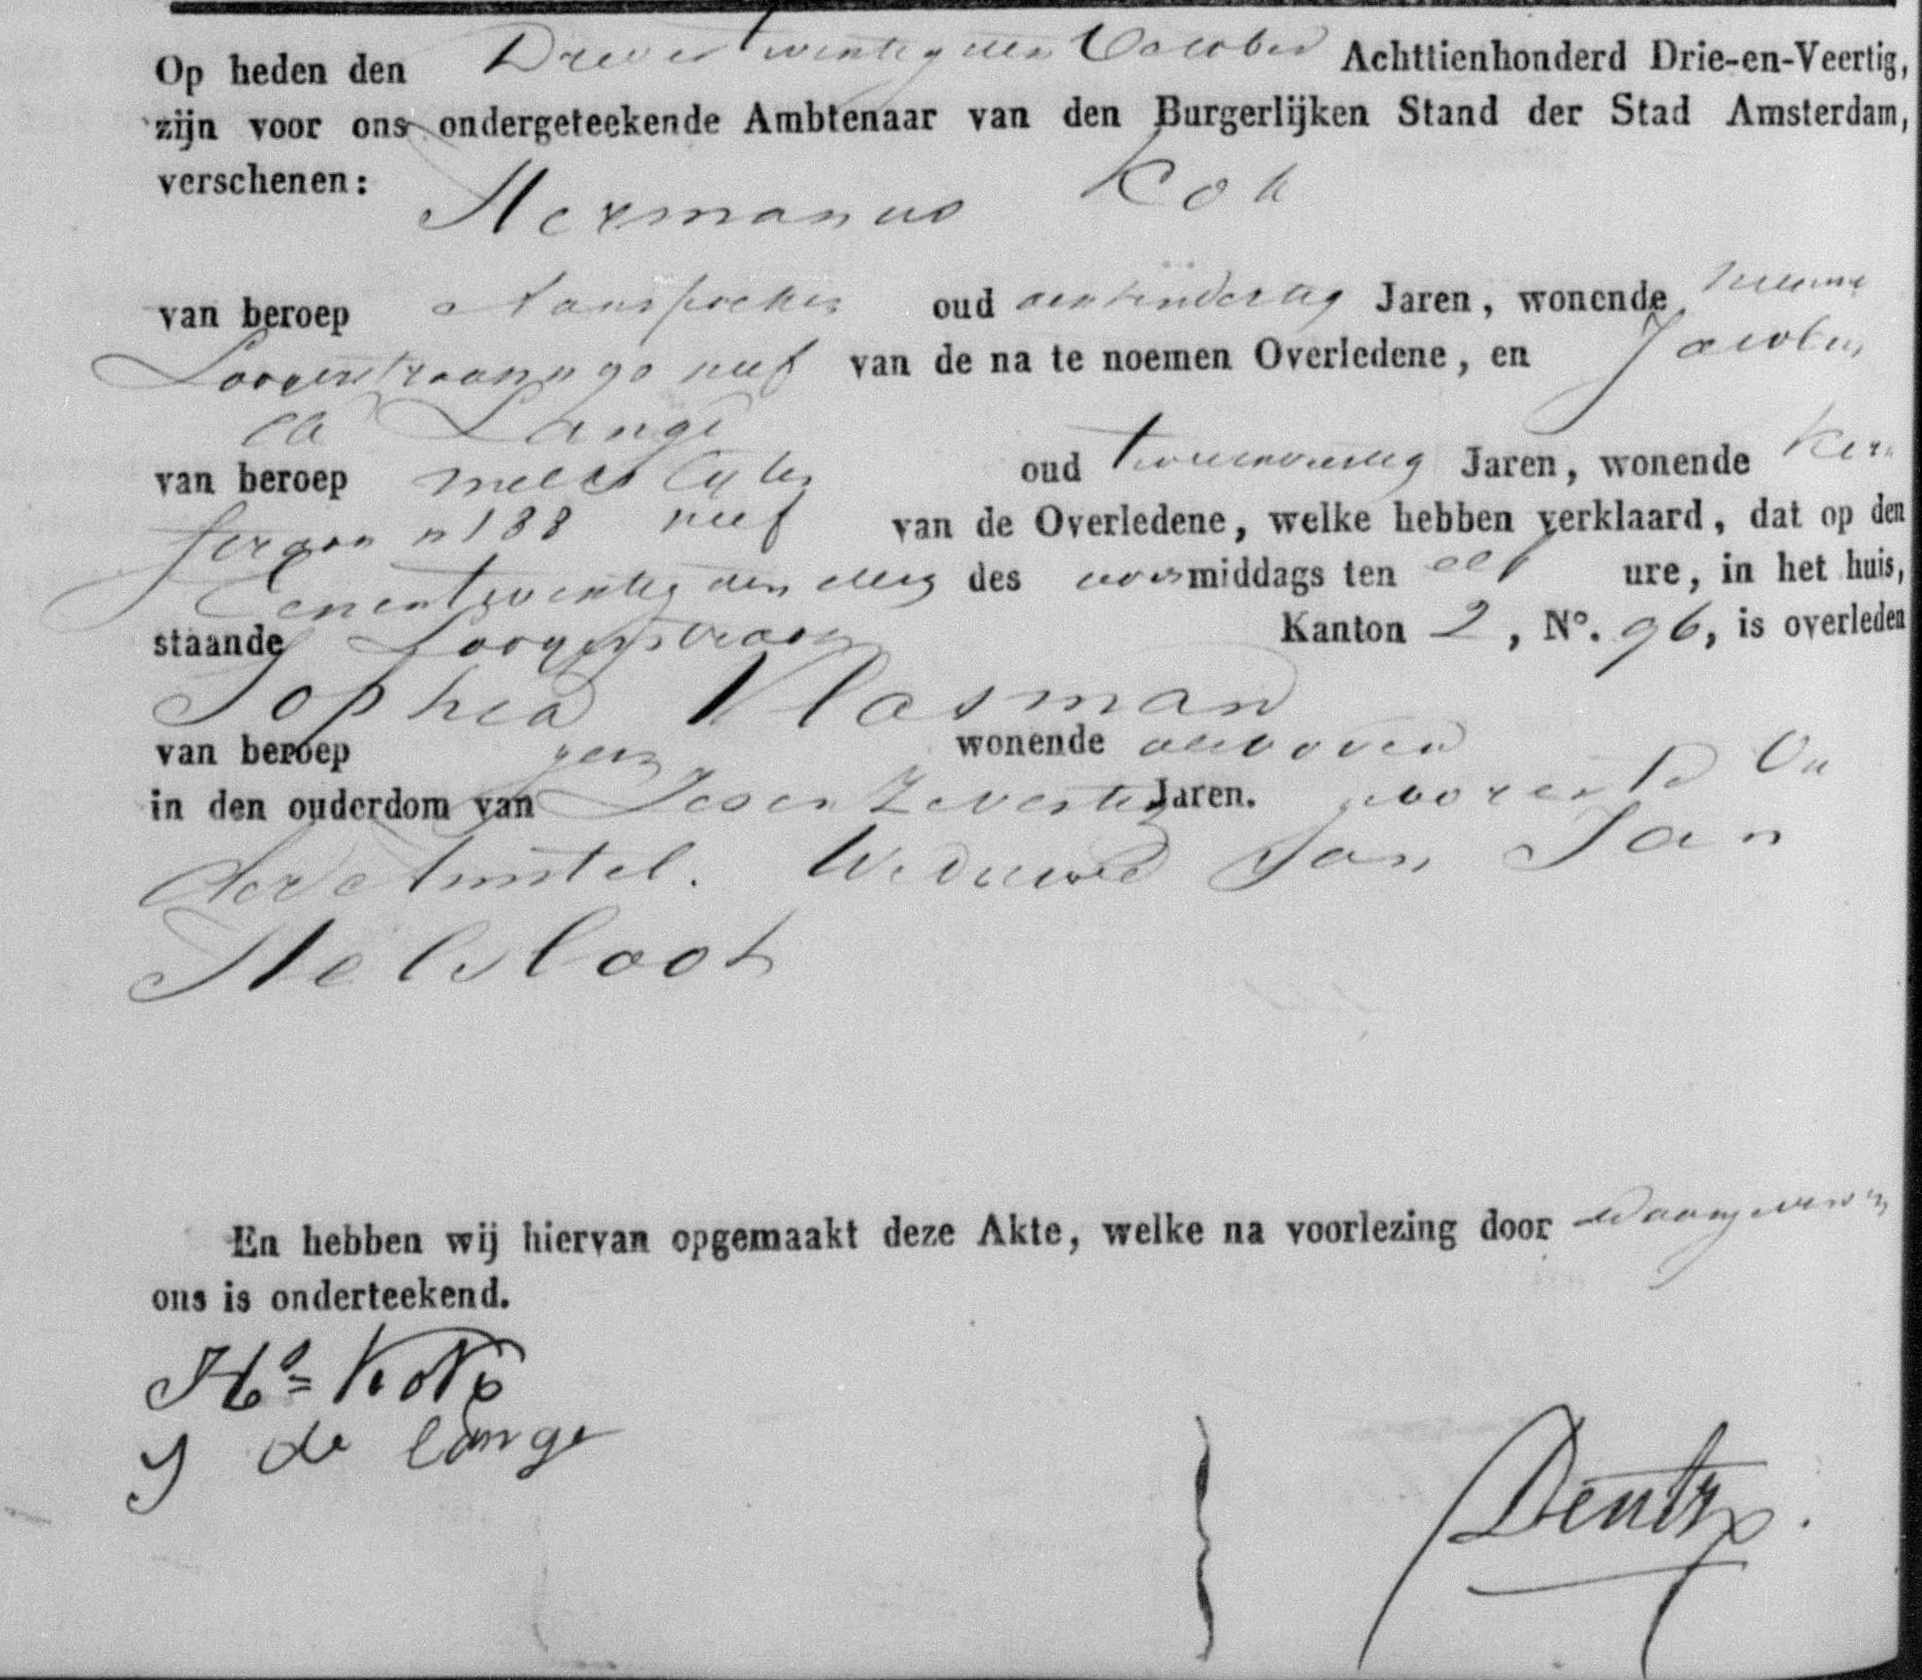 Op heden den Drieentwintigsten October Achttienhonderd Drie-en-Veertig,
zijn voor ons ondergeteekende Ambtenaar van den Burgerlijken Stand der Stad Amsterdam,
verschenen:
Hermanus Kok
van beroep Aanspreker oud Jaren, wonende Nieuwe
Looyerstraat no 90 neef van de na te noemen Overledene, en Jacobus
de Lange
van beroep oud Jaren, wonende Ker
n 188 neef van de Overledene, welke hebben verklaard, dat op den
Eenentwintigsten dezer des voormiddags ten elf ure, in het huis,
staande Looyerstraat Kanton 2, No. 96, is overleden
Sophia Vlasman
van beroep geen wonende alsboven
in den ouderdom van Zesenzeventig Jaren. geboren te Ou
der Amstel. Weduwe van Jan
Helsloot
En hebben wij hiervan opgemaakt deze Akte, welke na voorlezing door
ons is onderteekend.
Hs Kok
J de Lange